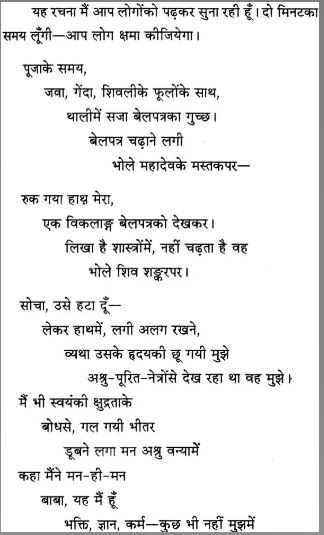 यह रचना मैं आप लोगोंको पढ़कर सुना रही हूँ। दो मिनटका
समय लूँगी—आप लोग क्षमा कीजियेगा।
पूजाके समय,
जवा, गेंदा, शिवलीके फूलोंके साथ,
थालीमें सजा बेलपत्रका गुच्छ।
बेलपत्र चढ़ाने लगी
भोले महादेवके मस्तकपर—
रुक गया हाथ मेरा,
एक विकलाङ्ग बेलपत्रको देखकर।
लिखा है शास्त्रोंमें, नहीं चढ़ता है वह
भोले शिव शङ्करपर।
सोचा, उसे हटा दूँ—
लेकर हाथमें, लगी अलग रखने,
व्यथा उसके हृदयकी छू गयी मुझे
अश्रु-पूरित-नेत्रोंसे देख रहा था वह मुझे।
मैं भी स्वयंकी क्षुद्रताके
बोधसे, गल गयी भीतर
डूबने लगा मन अश्रु वन्यामें
कहा मैंने मन-ही-मन
बाबा, यह मैं हूँ
भक्ति, ज्ञान, कर्म—कुछ भी नहीं मुझमें